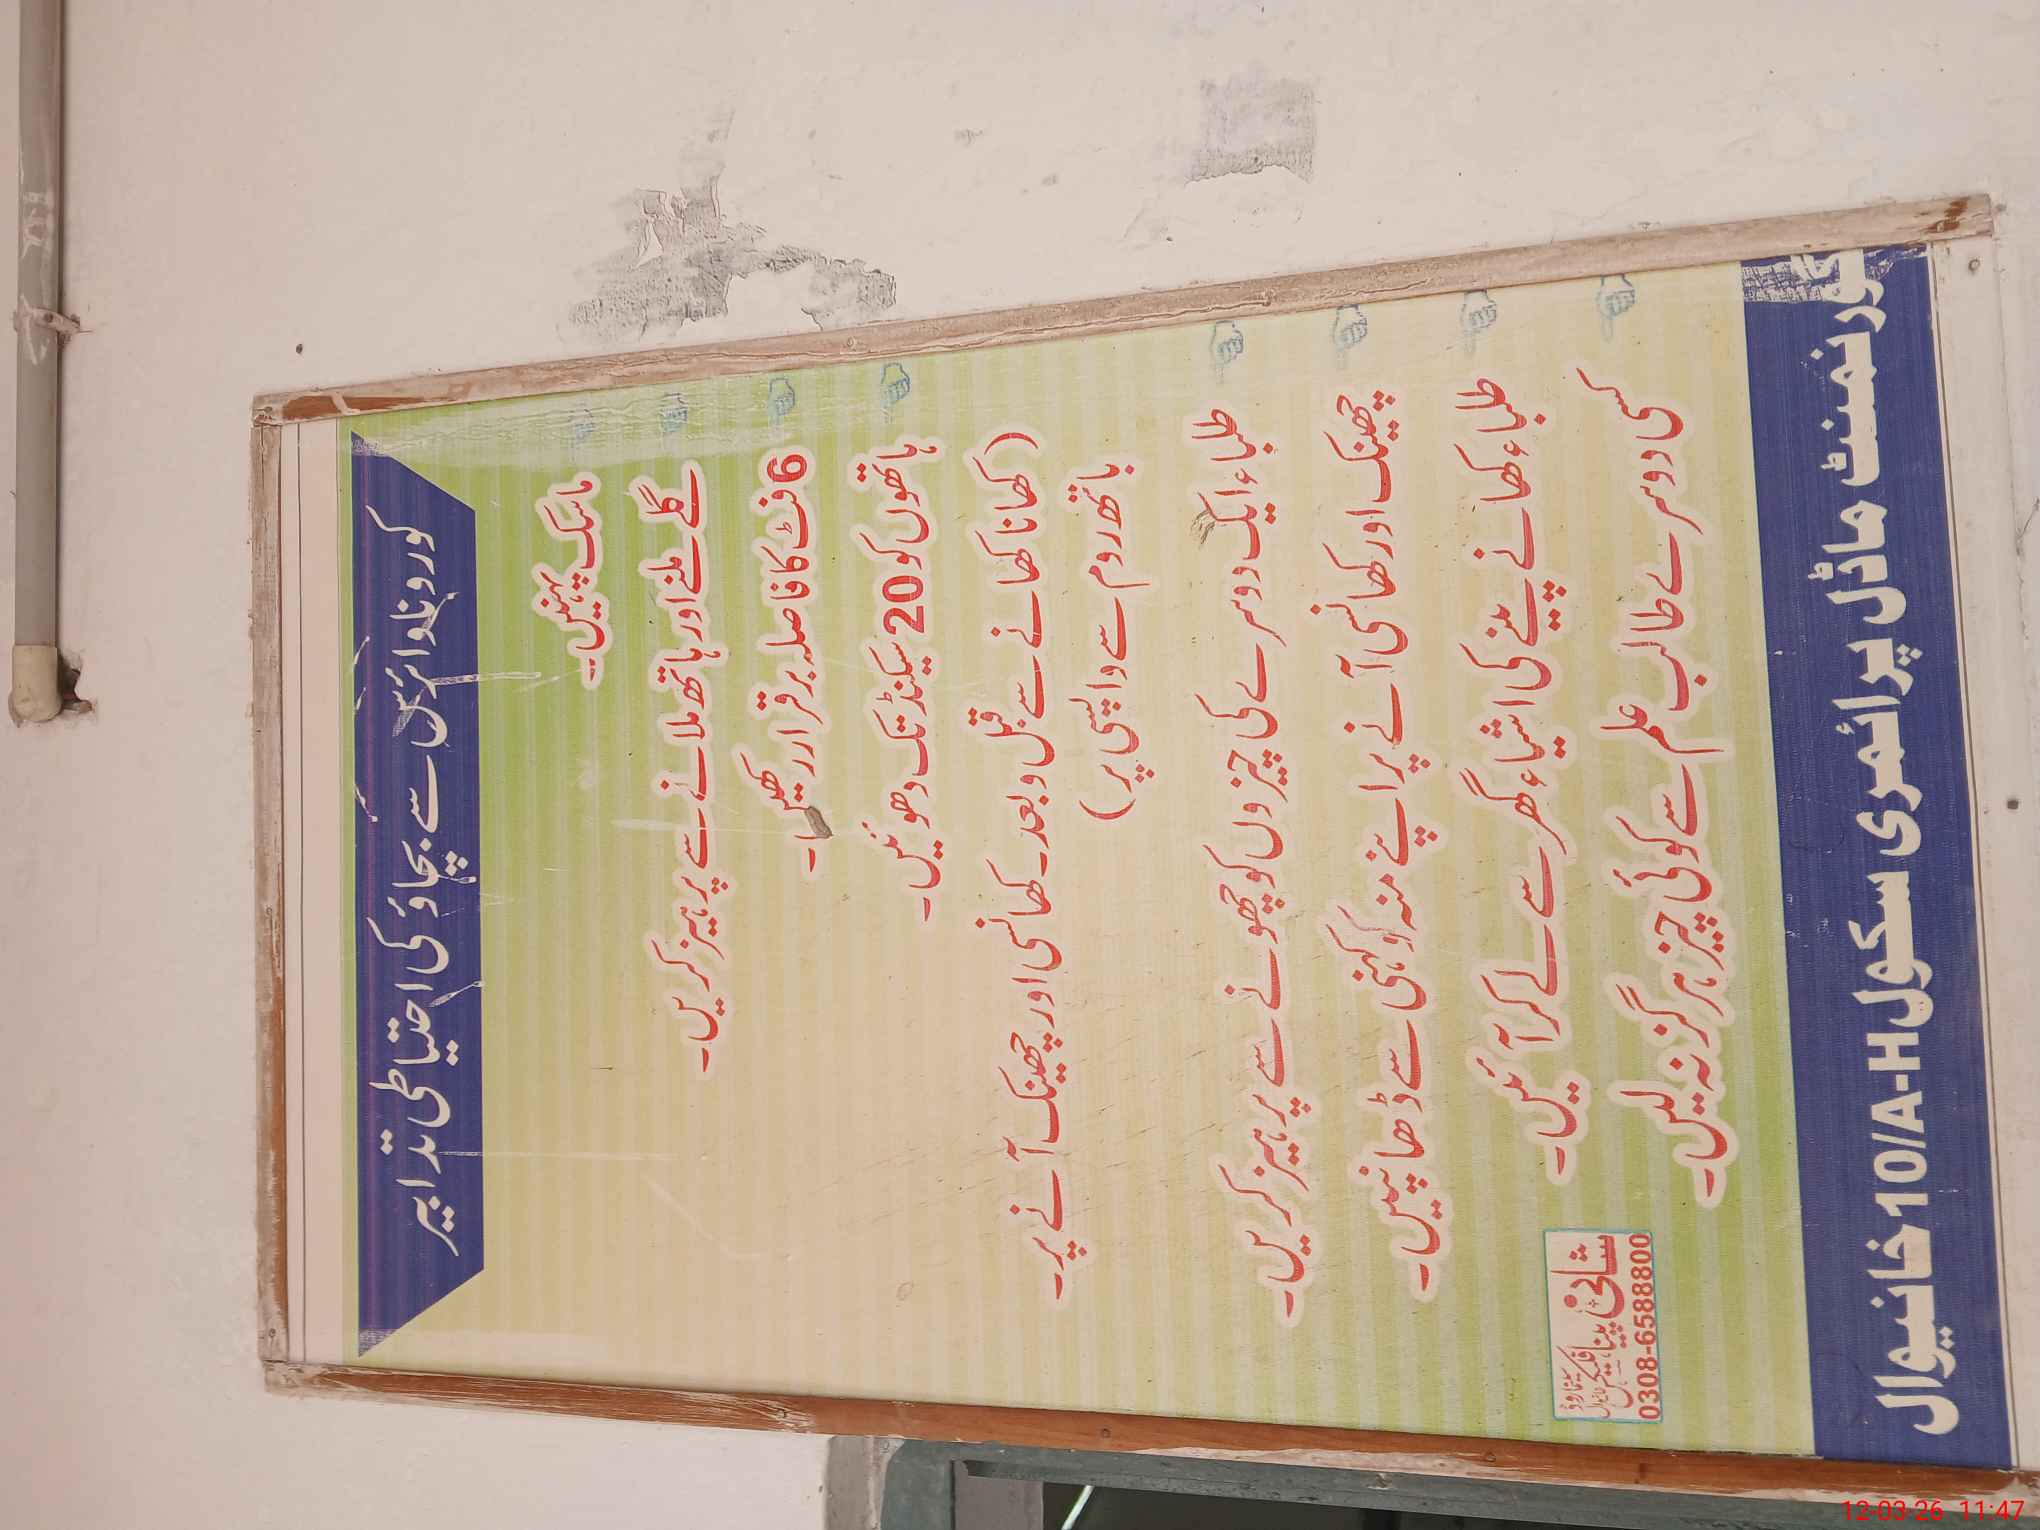 کورونا وائرس سے بچاؤ کی احتیاطی تدابیر
ماسک پہنیں۔
گلے ملنے اور ہاتھ ملانے سے پرہیز کریں۔
6 فٹ کا فاصلہ برقرار رکھیں۔
ہاتھوں کو 20 سیکنڈ تک دھوئیں۔
(کھانا کھانے سے قبل و بعد۔ کھانسی اور چھینک آنے پر۔
باتھ روم سے واپسی پر)
طلباء ایک دوسرے کی چیزوں کو چھونے سے پرہیز کریں۔
چھینک اور کھانسی آنے پر اپنے منہ کو کہنی سے ڈھانپیں۔
طلباء کھانے پینے کی اشیاء گھر سے لے کر آئیں۔
کسی دوسرے طالب علم سے کوئی چیز ہرگز نہ لیں۔
0308-6588800
گورنمنٹ ماڈل پرائمری سکول 10/A-H خانیوال
12-03-26 11:47